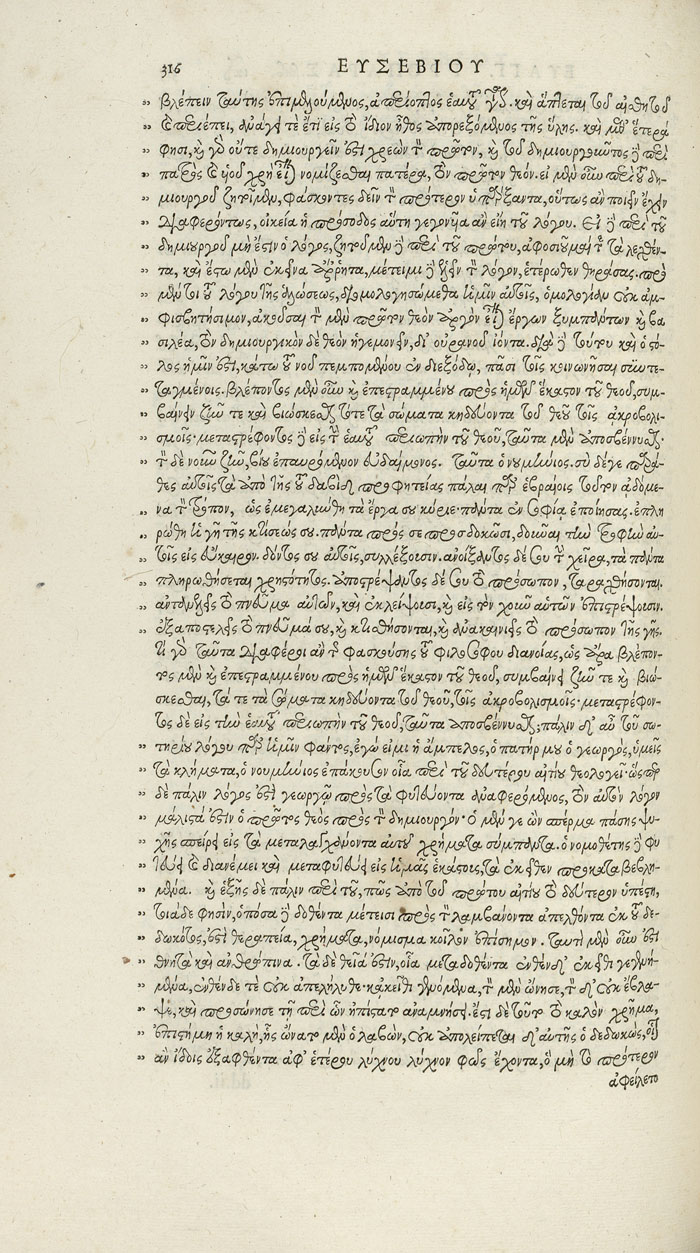 316 ΕΥΣΕΒΙΟΥ
„ βλέπειν ταύτης ἐπιμελούμενος, ἀπερίοπτος ἑαυτοῦ γίνεται. καὶ ἅπτεται τοῦ αἰσθητοῦ
„ καὶ περιέπει, ἀνάγει τε ἔτι εἰς τὸ ἴδιον ἦθος ἐπορεξάμενος τῆς ὕλης. καὶ μεθ' ἕτερά
„ φησι, καὶ γὸ οὔτε δημιουργεῖν ἐστι χρεὼν τὸν πρῶτον, καὶ τοῦ δημιουργοῦντος δὲ θεοῦ
„ πατρὸς καὶ υἱοῦ χρὴ εἶναι νομίζεσθαι πατέρα, τὸν πρῶτον θεόν. εἰ μὲν οὖν περὶ τοῦ δη-
„ μιουργοῦ ζητοῖμεν, φάσκοντες δεῖν τὸν πρότερον ὑπάρξαντα, οὕτως ἂν ποιεῖν ἔχειν
„ διαφερόντως, οἰκεία ἡ πρόσοδος αὕτη γεγονυῖα ἂν εἴη τοῦ λόγου. Εἰ δὲ περὶ τοῦ
„ δημιουργοῦ μή ἐστιν ὁ λόγος, ζητοῦμεν δὲ περὶ τοῦ πρώτου, ἀφοσιοῦμαί τε τὰ λεχθέν-
„ τα, καὶ ἔστω μὲν ἐκεῖνα ἄρρητα, μέτειμι δὲ ἑλεῖν τὸν λόγον, ἑτέρωθεν θηράσας. πρὸ
„ μέντοι τοῦ λόγου τῆς ἁλώσεως, διομολογησώμεθα ἡμῖν αὐτοῖς, ὁμολογίαν οὐκ ἀμ-
„ φισβητήσιμον, ἀκοῦσαι τὸν μὲν πρῶτον θεὸν ἀργὸν εἶναι ἔργων ξυμπάντων καὶ βα
„ σιλέα, τὸν δημιουργικὸν δὲ θεὸν ἡγεμονεῖν, δι' οὐρανοῦ ἰόντα. διὰ δὲ τούτου καὶ ὁ στό-
„ λος ἡμῖν ἐστι, κάτω τοῦ νοῦ πεμπομένου ἐν διεξόδῳ, πᾶσι τοῖς κοινωνῆσαι συντε-
„ ταγμένοις. βλέποντος μὲν οὖν καὶ ἐπεστραμμένου πρὸς ἡμῶν ἕκαστον τοῦ θεοῦ, συμ-
„ βαίνειν ζῆν τε καὶ βιώσκεσθαι τότε τὰ σώματα κηδεύοντα τοῦ θεοῦ τοῖς ἀκροβολι-
„ σμοῖς· μεταστρέφοντος δὲ εἰς τὴν ἑαυτοῦ περιωπὴν τοῦ θεοῦ, ταῦτα μὲν ἀποσβέννυσθαι·
„ τὸν δὲ νοῦν ζῆν, βίου ἐπαυρόμενον εὐδαίμονος. ταῦτα ὁ νουμήνιος. σὺ δέ γε παρά-
θες αὐτοῖς τὰ ἀπὸ τῆς τοῦ δαβὶδ προφητείας πάλαι παρ' ἑβραίοις τοῦτον ᾀδόμε-
„ να τὸν τρόπον, ὡς ἐμεγαλύνθη τὰ ἔργα σου κύριε· πάντα ἐν σοφίᾳ ἐποίησας. ἐπλη
„ ρώθη ἡ γῆ τῆς κτίσεώς σου. πάντα πρὸς σὲ προσδοκῶσι, δοῦναι τὴν τροφὴν αὐ-
„ τοῖς εἰς εὔκαιρον. δόντος σου αὐτοῖς, συλλέξουσιν. ἀνοίξαντος δέ σου τὴν χεῖρα, τὰ πάντα
„ πληρωθήσεται χρηστότητος. ἀποστρέψαντος δέ σου τὸ πρόσωπον, ταραχθήσονται.
„ ἀντανελεῖς τὸ πνεῦμα αὐτῶν, καὶ ἐκλείψουσι, καὶ εἰς τὸν χοῦν αὐτῶν ἐπιστρέψουσιν.
„ ἐξαποστελεῖς τὸ πνεῦμά σου, καὶ κτισθήσονται, καὶ ἀνακαινιεῖς τὸ πρόσωπον τῆς γῆς.
τί γὸ ταῦτα διαφέροι ἂν τῆς φασκούσης τοῦ φιλοσόφου διανοίας, ὡς ἄρα βλέπον-
τος μὲν καὶ ἐπεστραμμένου πρὸς ἡμῶν ἕκαστον τοῦ θεοῦ, συμβαίνει ζῆν τε καὶ βιώ-
σκεσθαι, τά τε τὰ σώματα κηδεύοντα τοῦ θεοῦ, τοῖς ἀκροβολισμοῖς· μεταστρέφον-
τος δὲ εἰς τὴν ἑαυτοῦ περιωπὴν τοῦ θεοῦ, ταῦτα ἀποσβέννυσθαι; πάλιν δ' αὖ τοῦ σω-
„ τηρίου λόγου παρ' ἡμῖν φάντος, ἐγώ εἰμι ἡ ἄμπελος, ὁ πατήρ μου ὁ γεωργός, ὑμεῖς
„ τὰ κλήματα, ὁ νουμήνιος ἐπάκουσον οἷα περὶ τοῦ δευτέρου αἰτίου θεολογεῖ· ὥσπερ
„ δὲ πάλιν λόγος ἐστὶ γεωργῷ πρὸς τὰ φυτεύοντα ἀναφερόμενος, τὸν αὐτὸν λόγον
„ μάλιστά ἐστιν ὁ πρῶτος θεὸς πρὸς τὸν δημιουργόν· ὁ μέν γε ὢν σπέρμα πάσης ψυ-
„ χῆς σπείρει εἰς τὰ μεταλαγχάνοντα αὐτοῦ χρήματα σύμπαντα. ὁ νομοθέτης δὲ φυ
„ τεύει καὶ διανέμει καὶ μεταφυτεύει εἰς ἡμᾶς ἑκάστους, τὰ ἐκεῖθεν προκαταβεβλη-
„ μένα. καὶ ἑξῆς δὲ πάλιν περὶ τοῦ, πῶς ἀπὸ τοῦ πρώτου αἰτίου τὸ δεύτερον ὑπέστη,
„ τοιάδε φησίν, ὁπόσα δὲ δοθέντα μέτεισι πρὸς τὸν λαμβάνοντα ἀπελθόντα ἐκ τοῦ δε-
„ δωκότος, ἐστὶ θεραπεία, χρήματα, νόμισμα κοῖλον ἐπίσημον. ταυτὶ μὲν οὖν ἐστι
„ θνητὰ καὶ ἀνθρώπινα. τὰ δὲ θεῖά ἐστιν, οἷα μεταδοθέντα ἐνθένδ' ἐκεῖθι γεγενη-
„ μένα, ἐνθένδε τὲ οὐκ ἀπελήλυθε· κἀκεῖθι γενόμενα, τὸν μὲν ὤνησε, τὸν δ' οὐκ ἔβλα-
„ ψε, καὶ προσώνησε τῇ περὶ ὧν ἠπίστατο ἀναμνήσει. ἔστι δὲ τοῦτο τὸ καλὸν χρῆμα,
„ ἐπιστήμη ἡ καλή, ἧς ὤνατο μὲν ὁ λαβών, οὐκ ἀπολείπεται δ' αὐτῆς ὁ δεδωκώς, οἷον
„ ἂν ἴδοις ἐξαφθέντα ἀφ' ἑτέρου λύχνου λύχνον φῶς ἔχοντα, ὃ μὴ τὸ πρότερον
ἀφείλετο